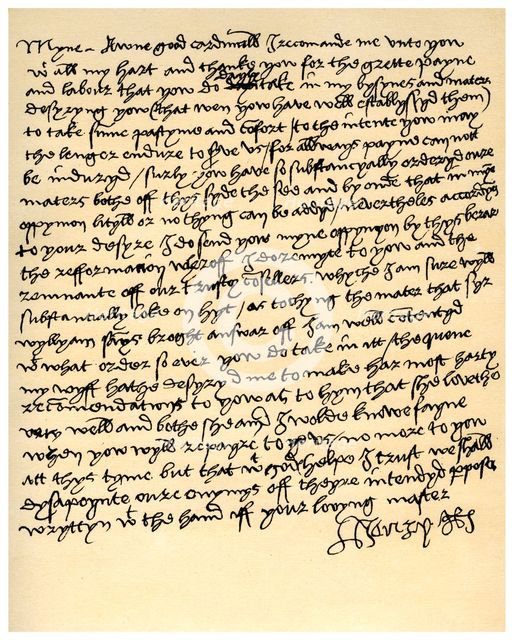 Myne Awne good cardinall I recomande me unto yow
wt all my hart and thanke yow for the grette payne
and labour that yow do dayly take in my bysynes and maters
desyryng yow (that wen yow have well establyssyd them)
to take summe pastyme and cofort to the intente yow may
the lenger endure to serve us / for allways payne can nott
be induryd / surly yow have so substancyally orderyd oure
maters bothe off thys syde the see and byonde that in myne
oppynion lityll or no thyng can be addyd / nevertheles accordyng
to your desyre I do send yow myne oppynyon by thys berar
the refformacion wheroff I do remytte to yow and the
remnante off our trusty coselers whyche I am sure wyll
substantially loke on hyt / as tochyng the mater that syr
wyllyam says broght answar off I am well cotentyd
wt what order so ever yow do take in itt / the quene
my wyff hathe desyryd me to make har most harty
recomendations to yow as to hym that she lovethe
very well and bothe she and I wolde knowe fayne
when yow wyll repayre to us / no more to yow
att thys tyme but that wt gods helpe I trust we shall
dysapoynte oure enymys off theyre intendyd purpose
wryttyn wt the hand off your lovyng master
Henry